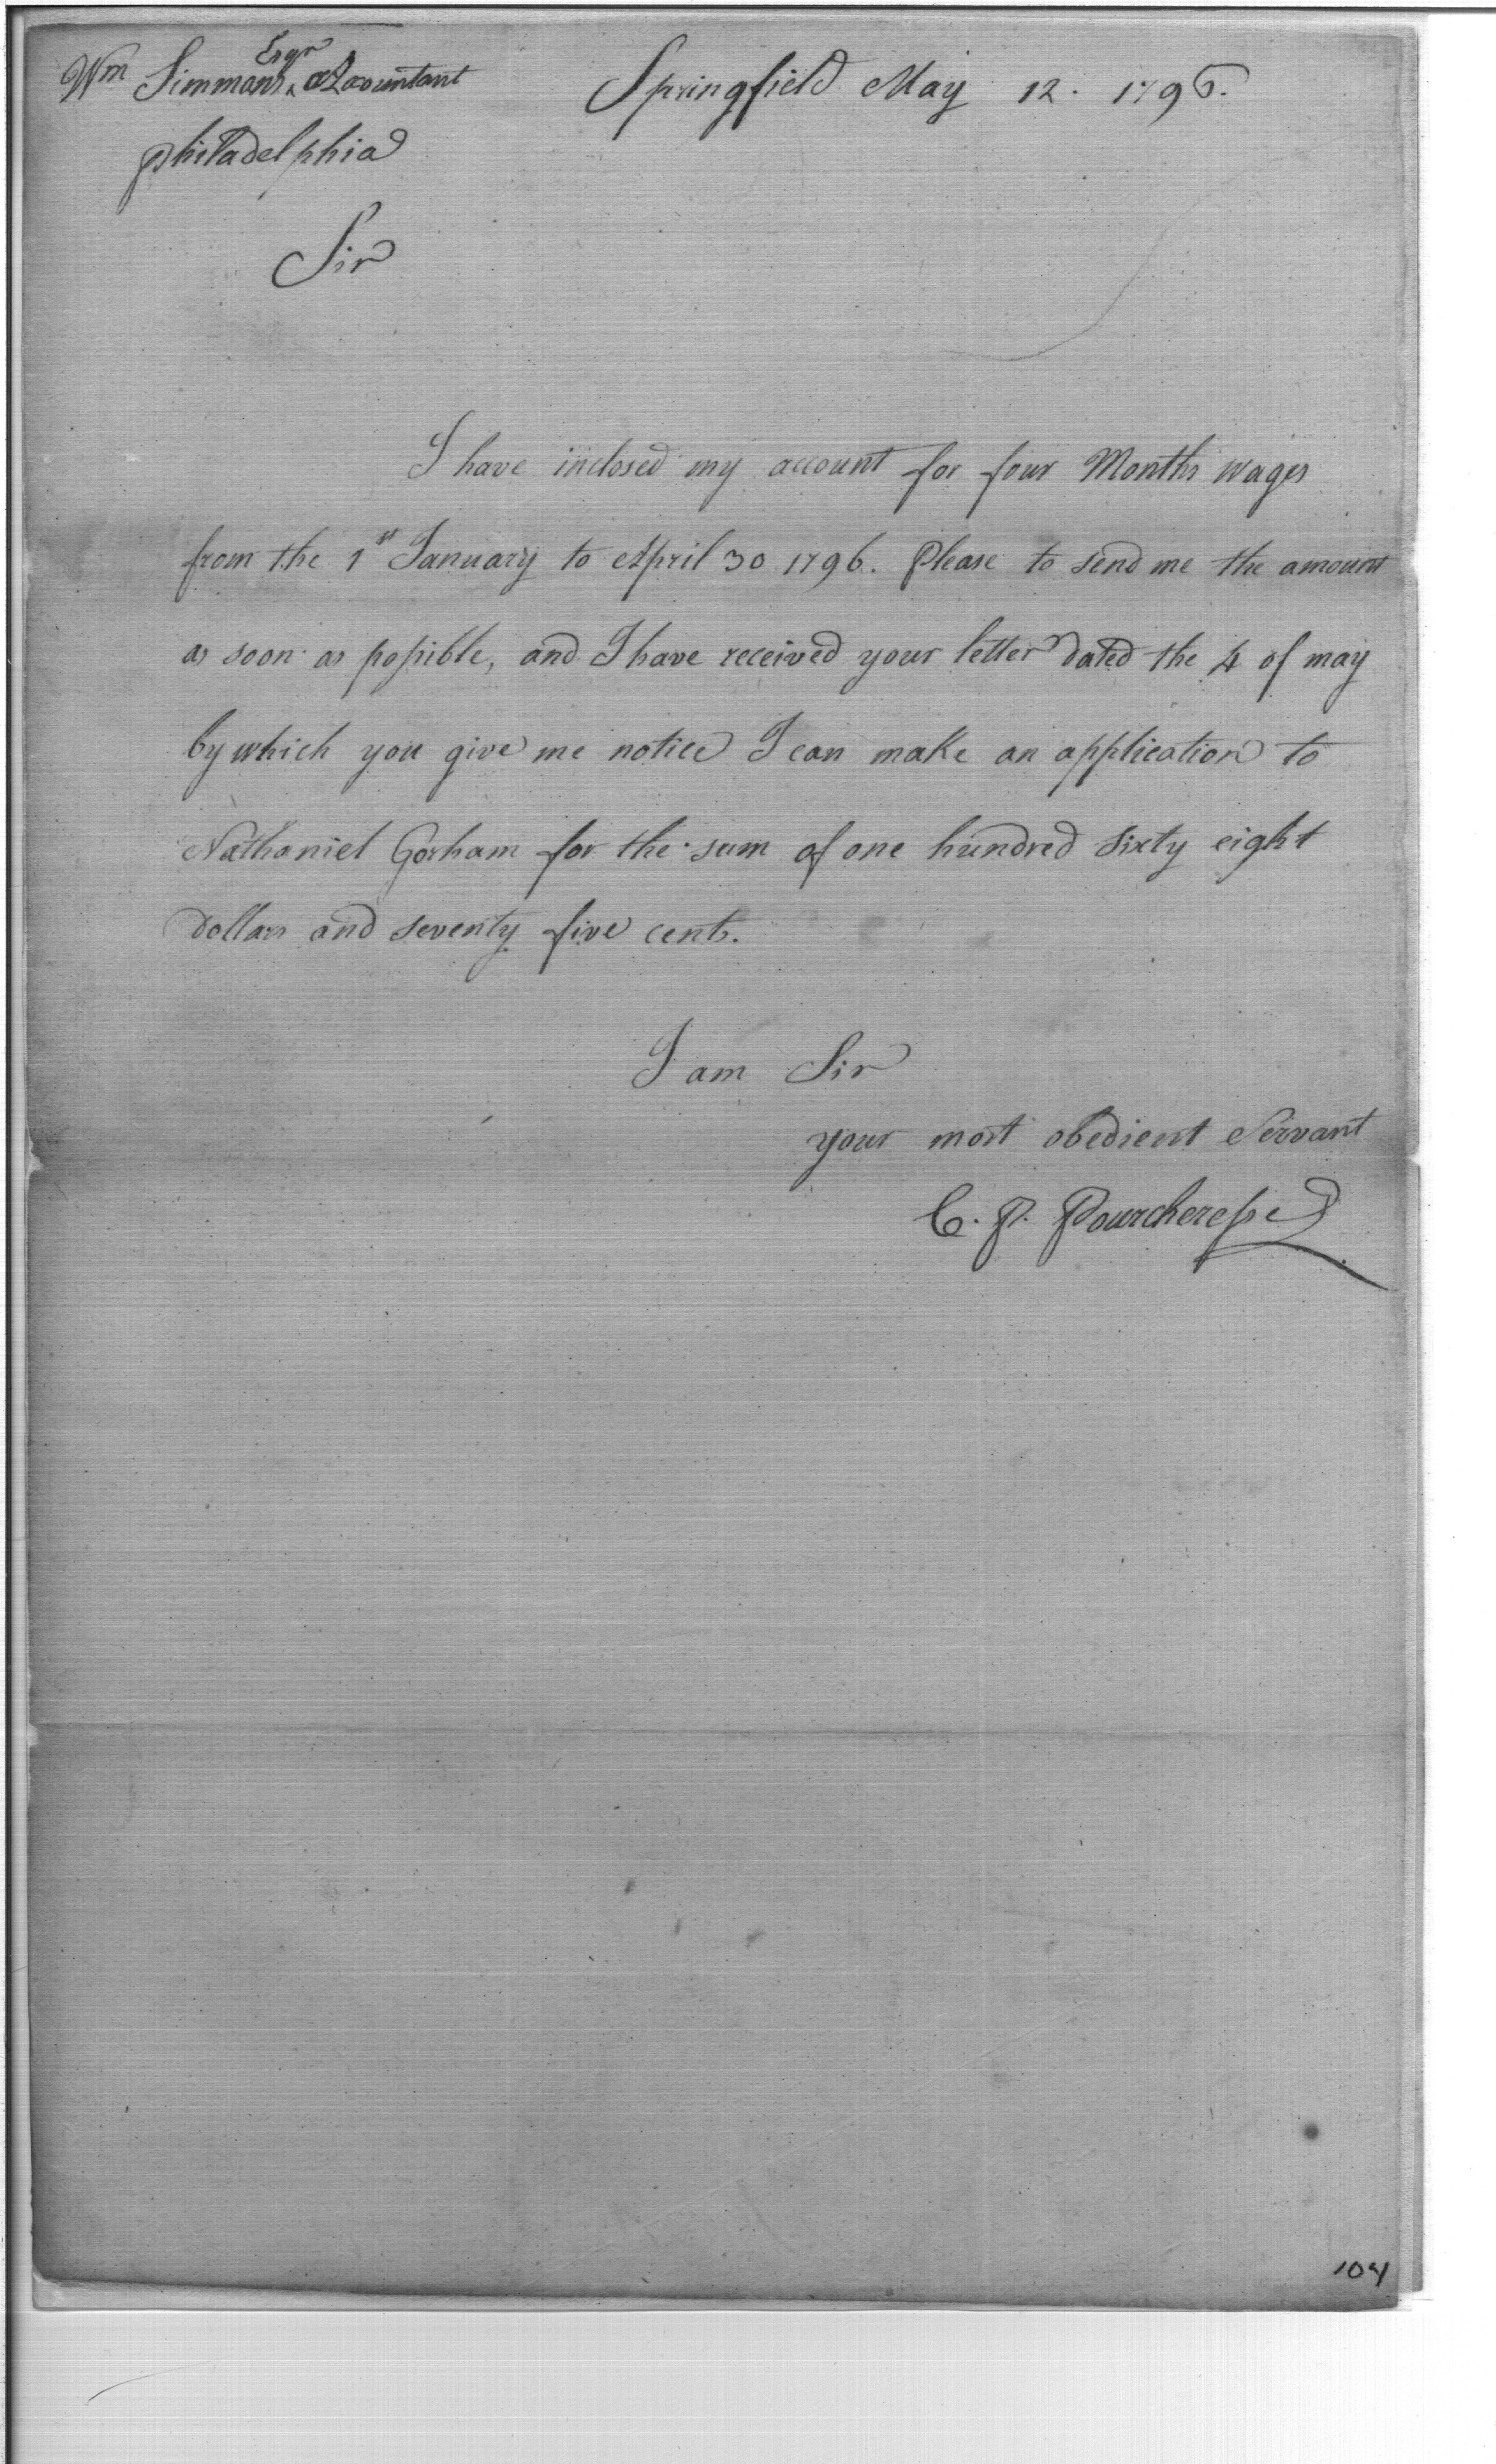 Wm Simmons Esqr Accountant
Springfield May 12. 1796.
Philadelphia
Sir
I have inclosed my account for four Months wages
from the 1st January to April 30 1796. Please to send me the amount
as soon as possible, and I have received your letter dated the 4 of may
by which you give me notice I can make an application to
Nathaniel Gorham for the sum of one hundred sixty eight
Dollars and seventy five cents.
I am Sir
your most obedient Servant
C. P. Pourcheresse
104